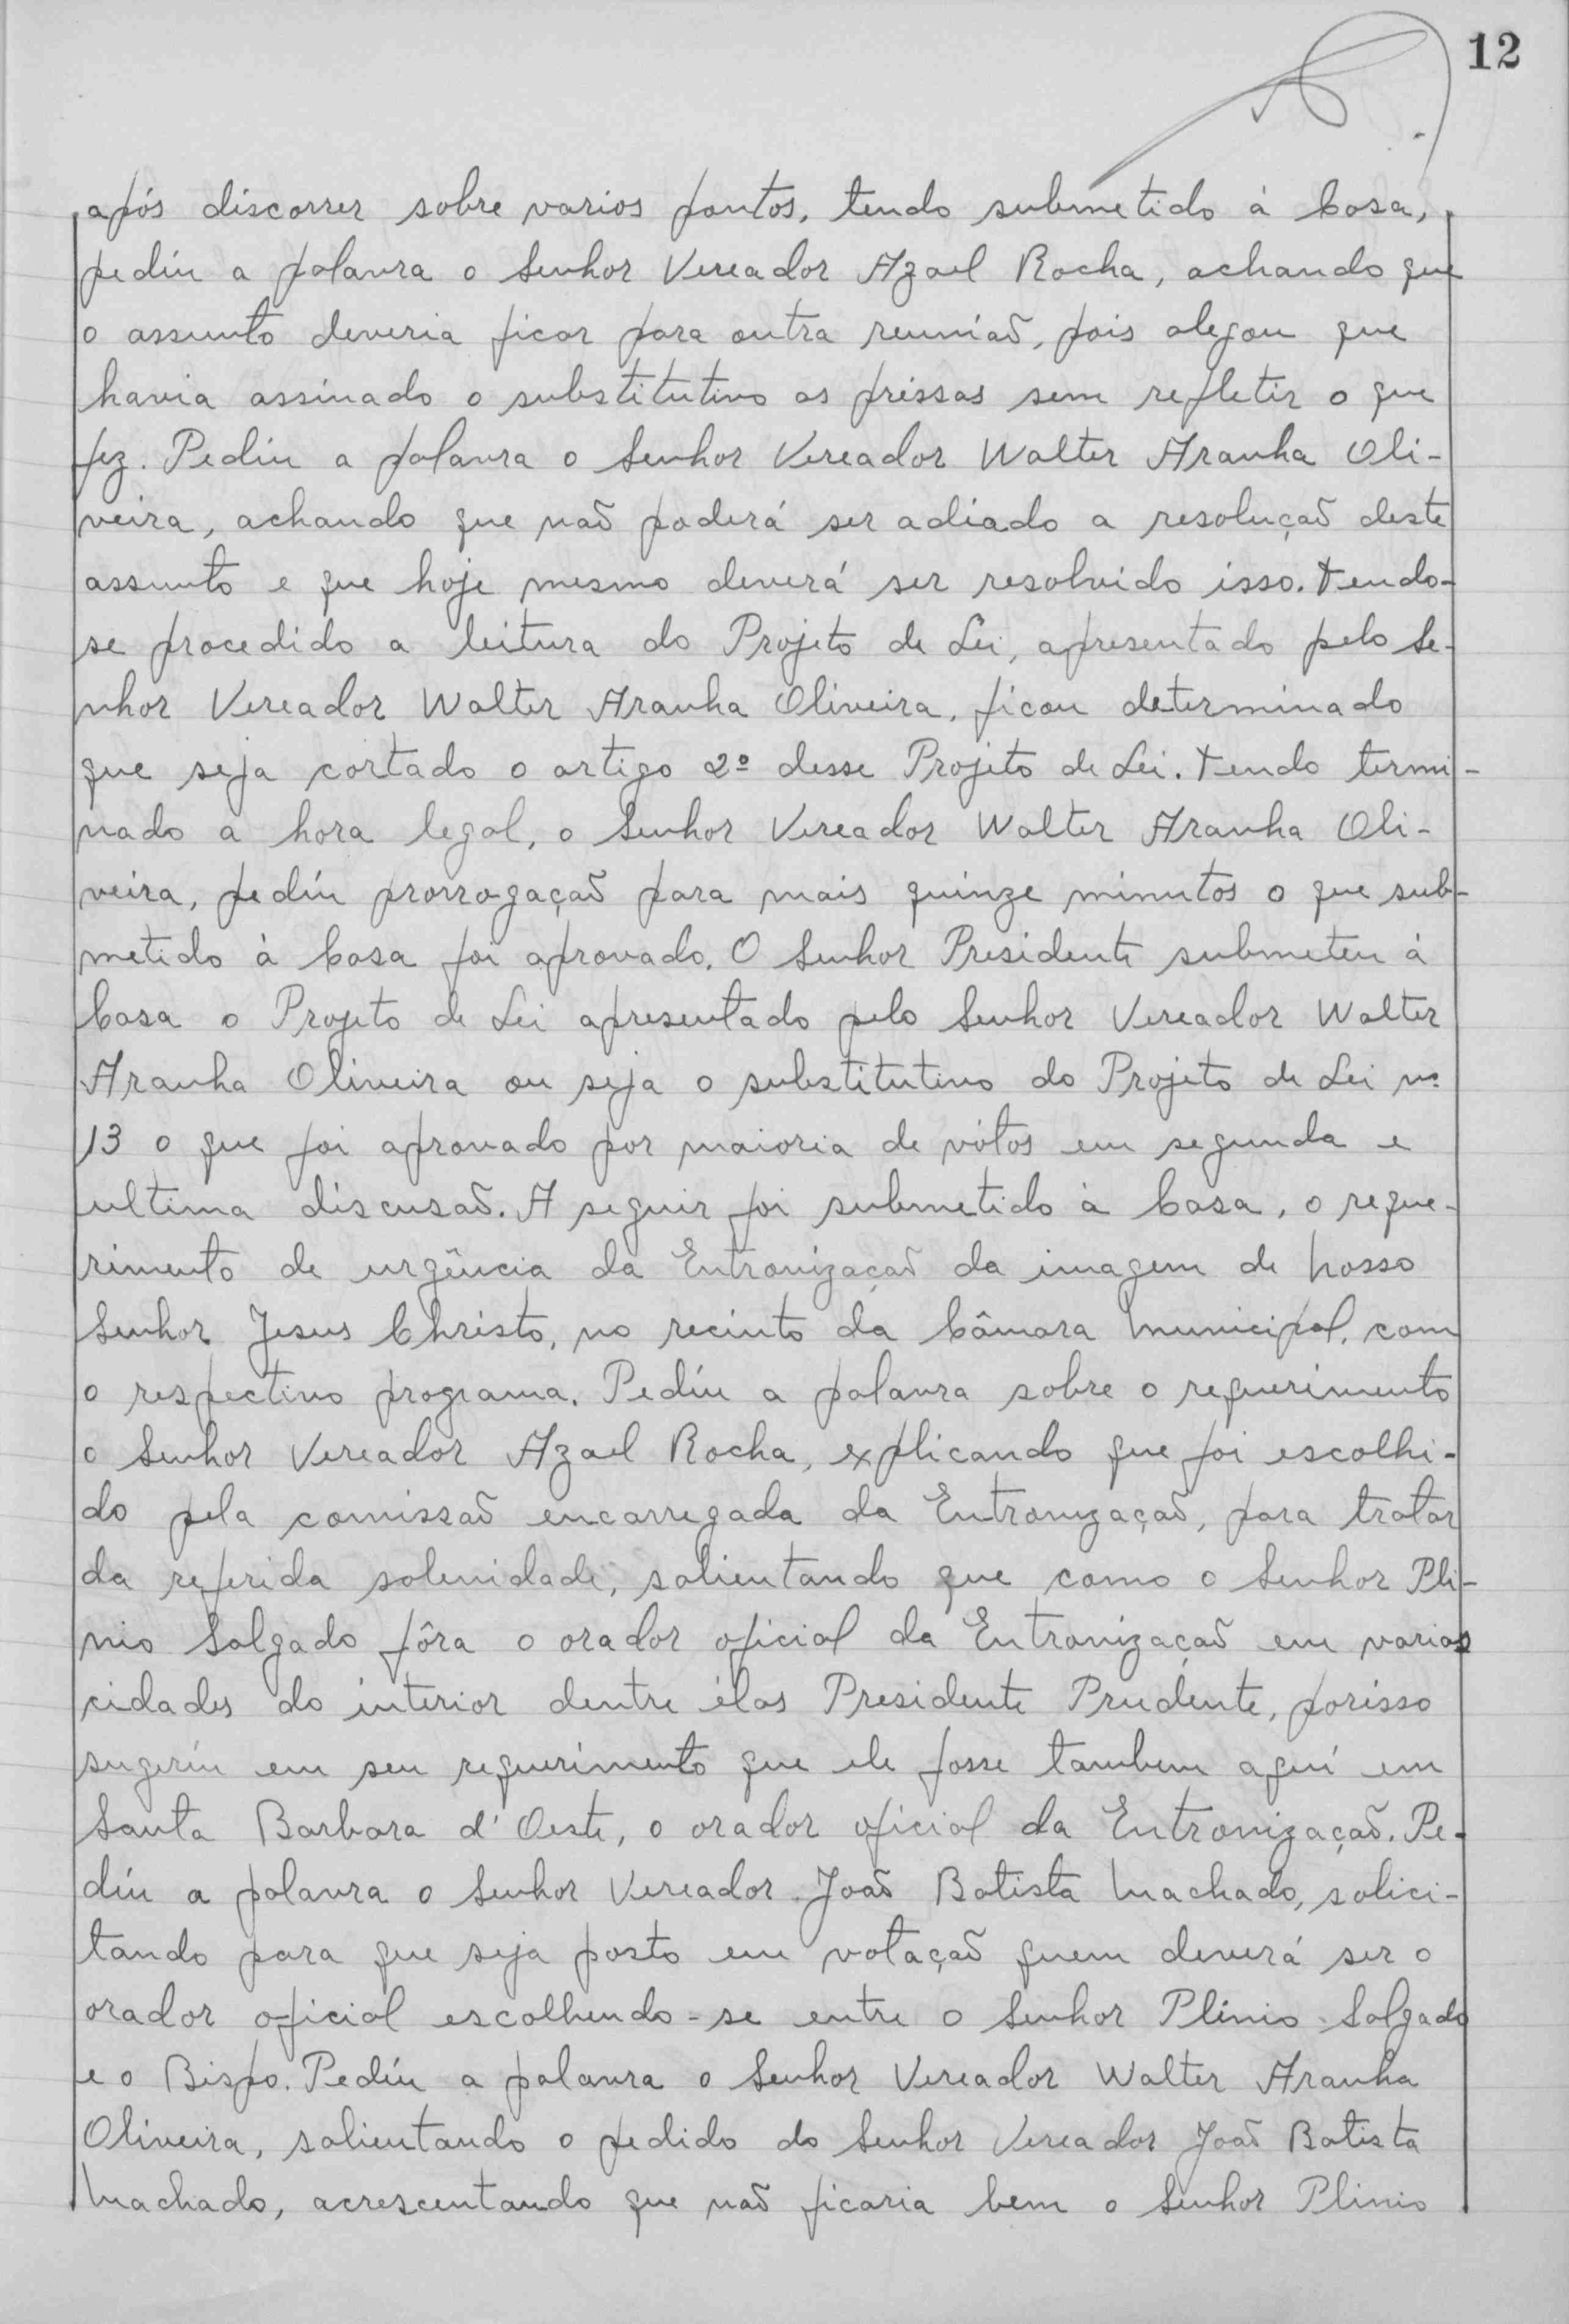 12
após discorrer sobre varios pontos, tendo submetido à Casa,
pedíu a palavra o Senhor Vereador Azael Rocha, achando que
o assunto deveria ficar para outra reuniaõ, pois alegou que
havia assinado o substitutivo as préssas sem refletir o que
fez. Pedíu a palavra o Senhor Vereador Walter Aranha Oli-
veira, achando que naõ poderá ser adiado a resoluçaõ deste
assunto e que hoje mesmo deverá ser resolvido isso. Tendo-
se procedido a leitura do Projeto de Lei, apresentado pelo Se-
nhor Vereador Walter Aranha Oliveira, ficou determinado
que seja cortado o artigo 2º desse Projeto de Lei. Tendo termi-
nado a hora legal, o Senhor Vereador Walter Aranha Oli-
veira, pedíu prorrogaçaõ para mais quinze minutos o que sub-
metido à Casa foi aprovado. O Senhor Presidente submeteu à
Casa o Projeto de Lei apresentado pelo Senhor Vereador Walter
Aranha Oliveira ou seja o substitutivo do Projeto de Lei nº
13 o que foi aprovado por maioria de vótos em segunda e
ultima discusaõ. A seguir foi submetido à Casa, o reque-
rimento de urgência da Entronizaçaõ da imagem de Nosso
Senhor Jesus Christo, no recinto da Câmara Municipal, com
o respectivo programa. Pedíu a palavra sobre o requerimento
o Senhor Vereador Azael Rocha, explicando que foi escolhi-
do pela comissaõ encarregada da Entronizaçaõ, para tratar
da referida solenidade, salientando que como o Senhor Pli-
nio Salgado fôra o orador oficial da Entronizaçaõ em varias
cidades do interior dentre élas Presidente Prudente, porisso
sugeríu em seu requerimento que ele fosse tambem aquí em
Santa Barbara d'Oeste, o orador oficial da Entronizaçaõ. Pe-
díu a palavra o Senhor Vereador Joaõ Batista Machado, solici-
tando para que seja posto em votaçaõ quem deverá ser o
orador oficial escolhendo-se entre o Senhor Plinio Salgado
e o Bispo. Pedíu a palavra o Senhor Vereador Walter Aranha
Oliveira, salientando o pedido do Senhor Vereador Joaõ Batista
Machado, acrescentando que naõ ficaria bem o Senhor Plinio